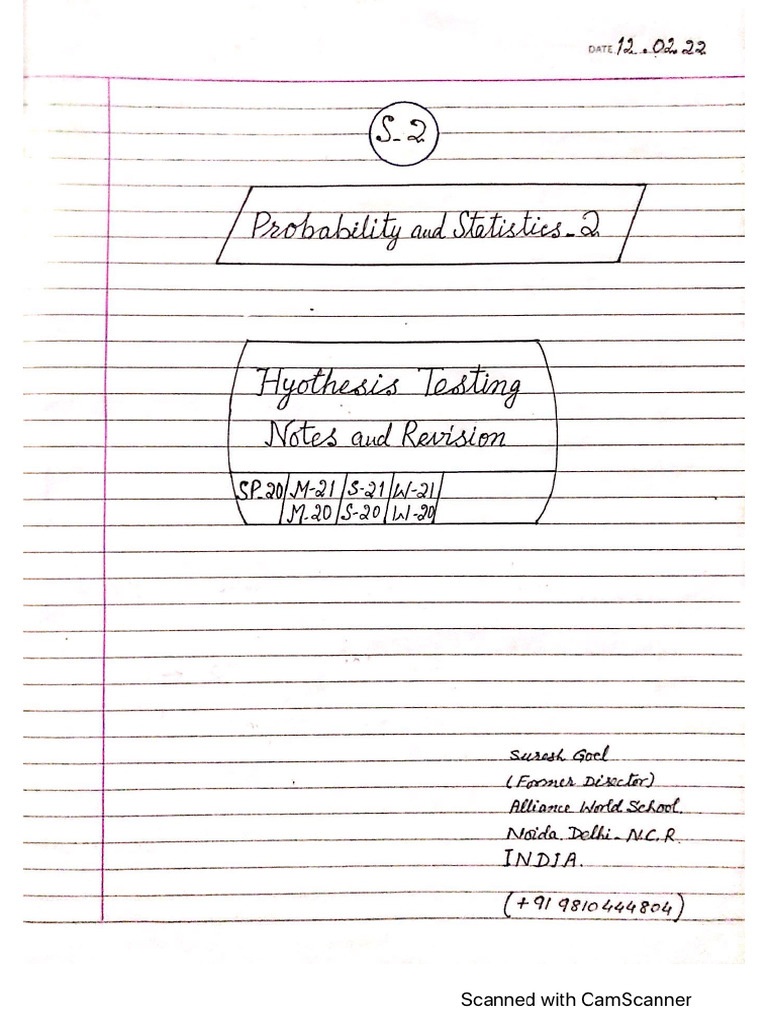 DATE 12.02.22
S-2
Probability and Statistics-2
Hyothesis Testing
Notes and Revision
SP-20 M-21 S-21 W-21
M-20 S-20 W-20
Suresh Goel
(Former Director)
Alliance World School.
Noida. Delhi-N.C.R.
INDIA.
(+91 9810444804)
Scanned with CamScanner